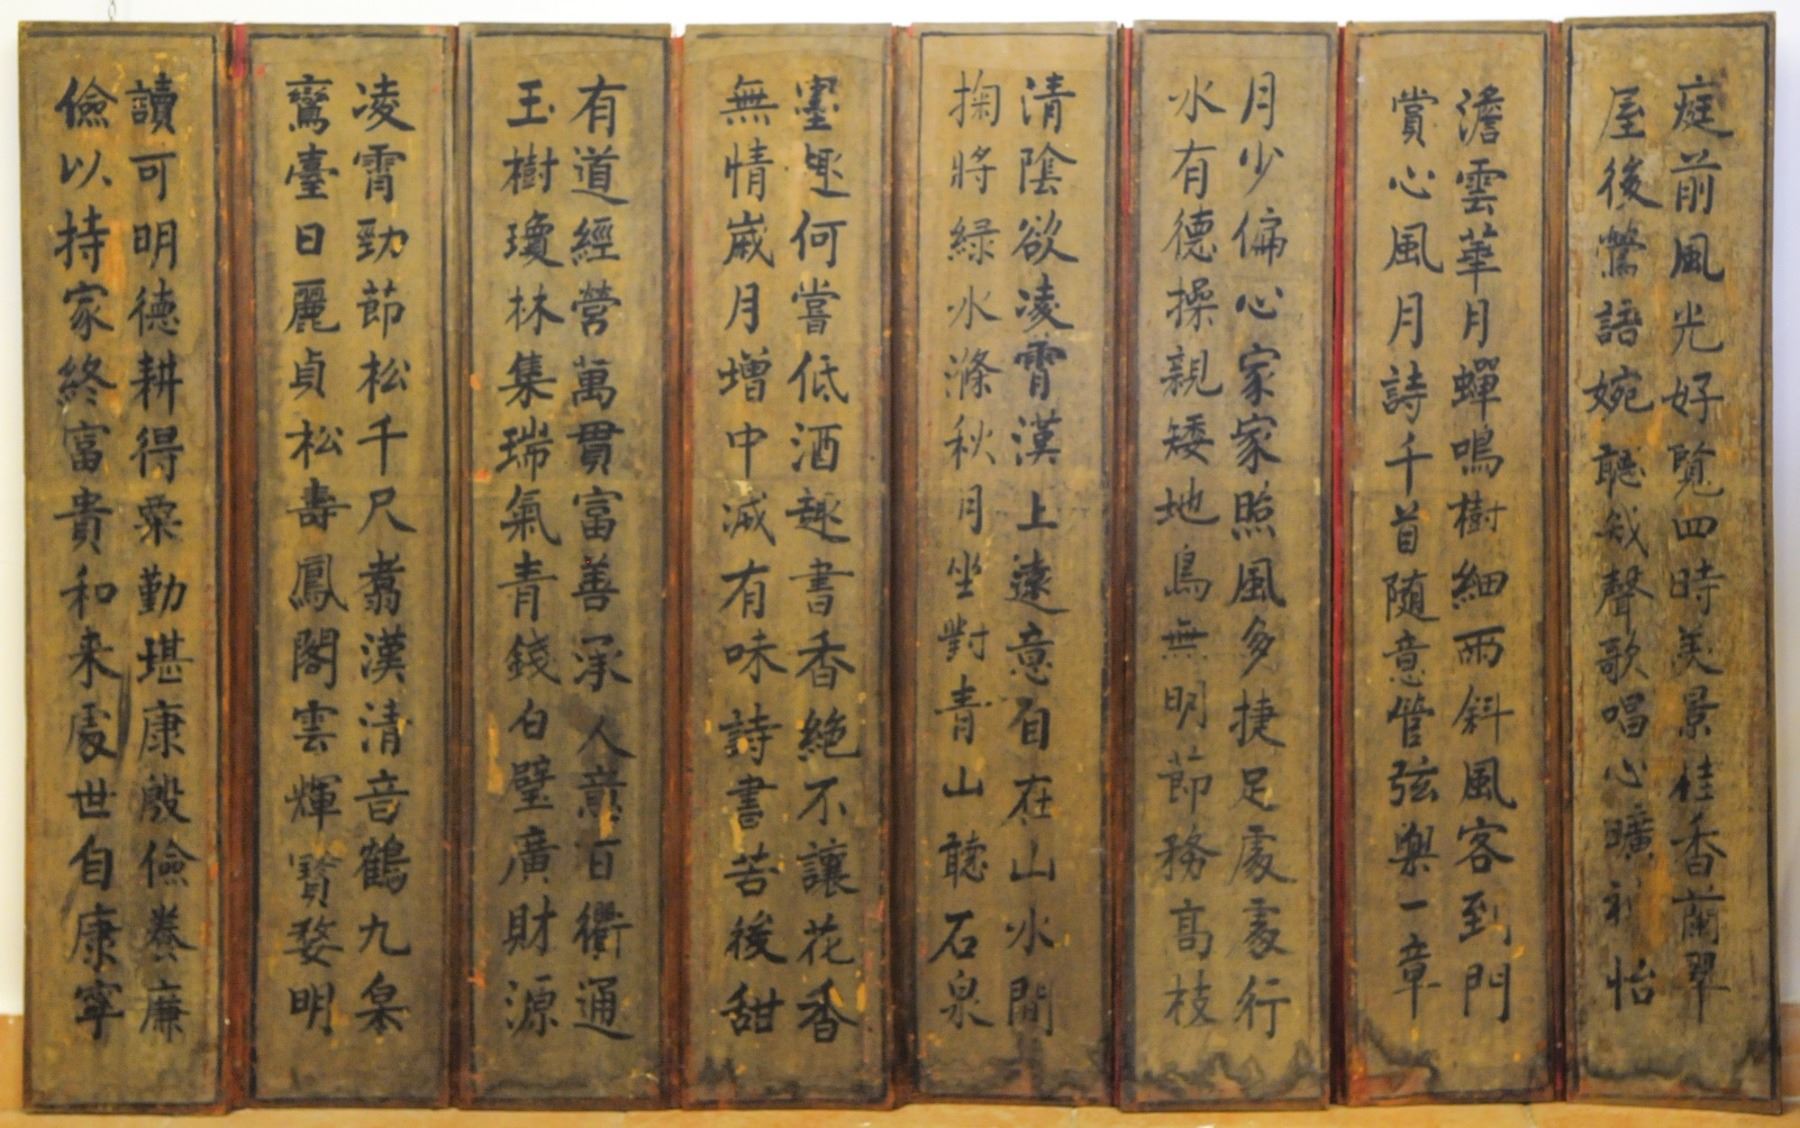 庭前風光好覽四時美景桂香蘭翠
屋後鶯語婉聽幾聲歌唱心曠神怡
澹雲華月蟬鳴樹細雨斜風客到門
賞心風月詩千首隨意管弦樂一章
月少偏心家家照風多捷足處處行
水有德操親矮地鳥無明節務高枝
清陰欲凌霄漢上遠意自在山水間
掬將緑水滌秋月坐對青山聽石泉
墨趣何嘗低酒趣書香絶不讓花香
無情歲月增中減有味詩書苦後甜
有道經營萬貫富善承人意百衢通
玉樹瓊林集瑞氣青錢白璧廣財源
凌霄勁節松千尺翥漢清音鶴九皋
鸞臺日麗貞松壽鳳閣雲輝寶婺明
讀可明德耕得粟勤堪康殷儉養廉
儉以持家終富貴和来處世自康寧